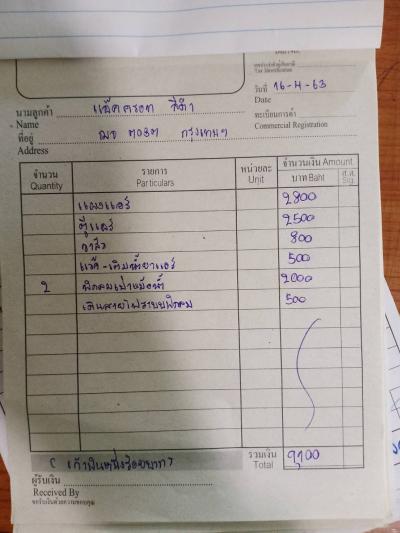 เลขประจำตัวผู้เสียภาษี
Tax Identification
วันที่ 16-4-63
Date
นามลูกค้า แม็คครอท สีดำ
Name
ทะเบียนการค้า
Commercial Registration
ที่อยู่ ฌข 7037 กรุงเทพฯ
Address
จำนวน รายการ หน่วยละ จำนวนเงิน Amount
Quantity Particulars Unit บาท Baht ส.ต. Stg.
แผงแอร์ 2800
ตู้แอร์ 2500
วาล์ว 800
แว๊ค-เติมน้ำยาแอร์ 500
2 พัดลมเป่าหม้อน้ำ 2000
เดินสายไฟระบบพัดลม 500
( เก้าพันหนึ่งร้อยบาท) รวมเงิน 9,100
Total
ผู้รับเงิน
Received By
ขอรับเงินด้วยความขอบคุณ